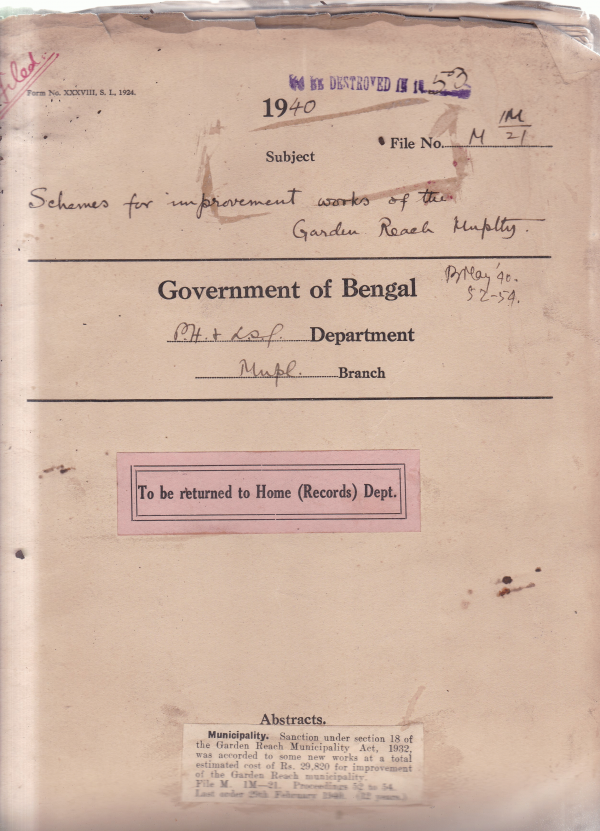 Filed.
Form No. XXXVIII, S. I., 1924.
TO BE DESTROYED IN 19 53
1940
File No. M 1M/21
Subject
Schemes for improvement works of the
Garden Reach Muplty.
Government of Bengal
B May '40.
52-54.
P.H. & L.S.G. Department
Mupl. Branch
To be returned to Home (Records) Dept.
Abstracts.
Municipality. Sanction under section 18 of
the Garden Reach Municipality Act, 1932,
was accorded to some new works at a total
estimated cost of Rs. 29,820 for improvement
of the Garden Reach municipality.
File M. 1M—21. Proceedings 52 to 54.
Last order 29th February 1940. (12 years.)